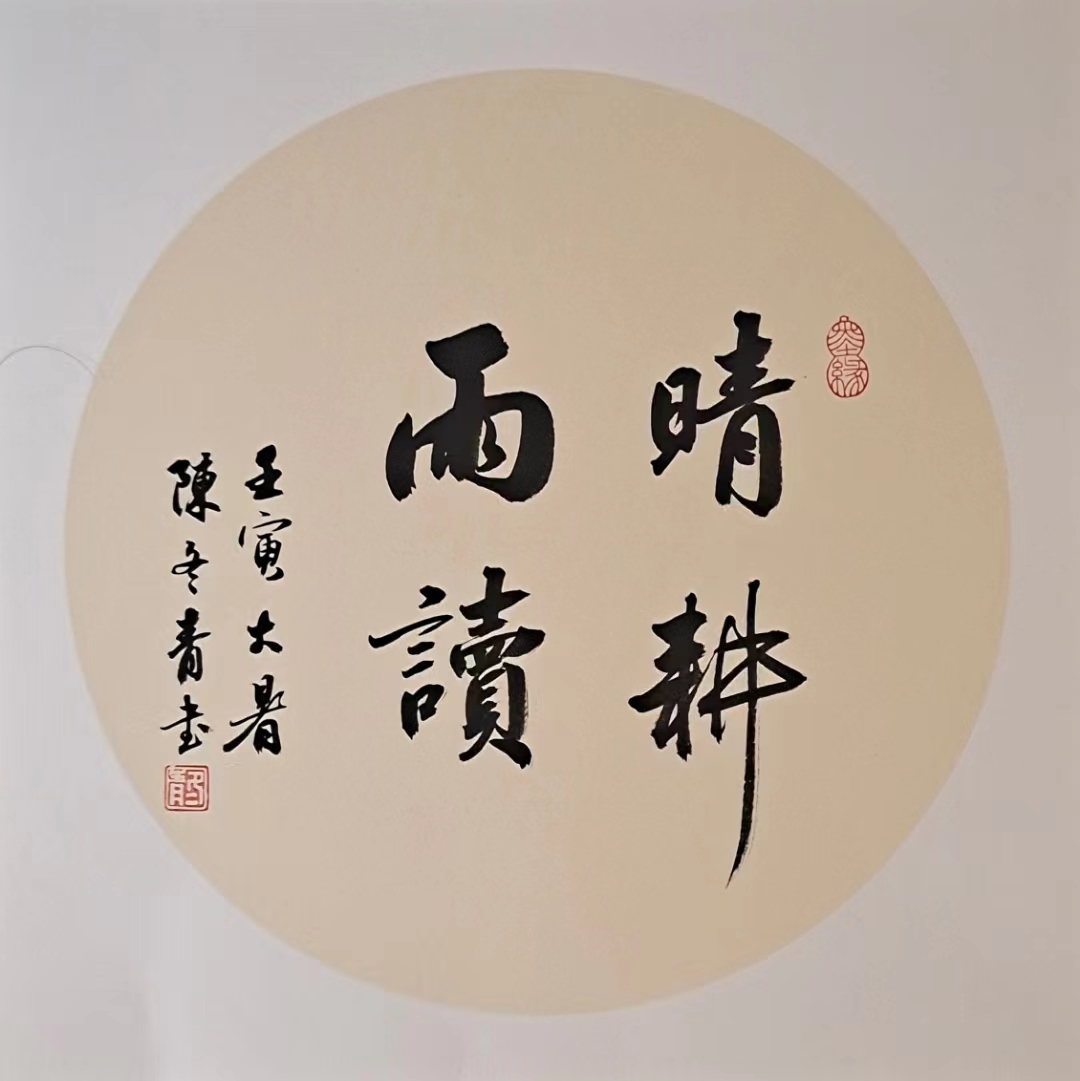 晴耕
雨讀
壬寅大暑
陳冬青书